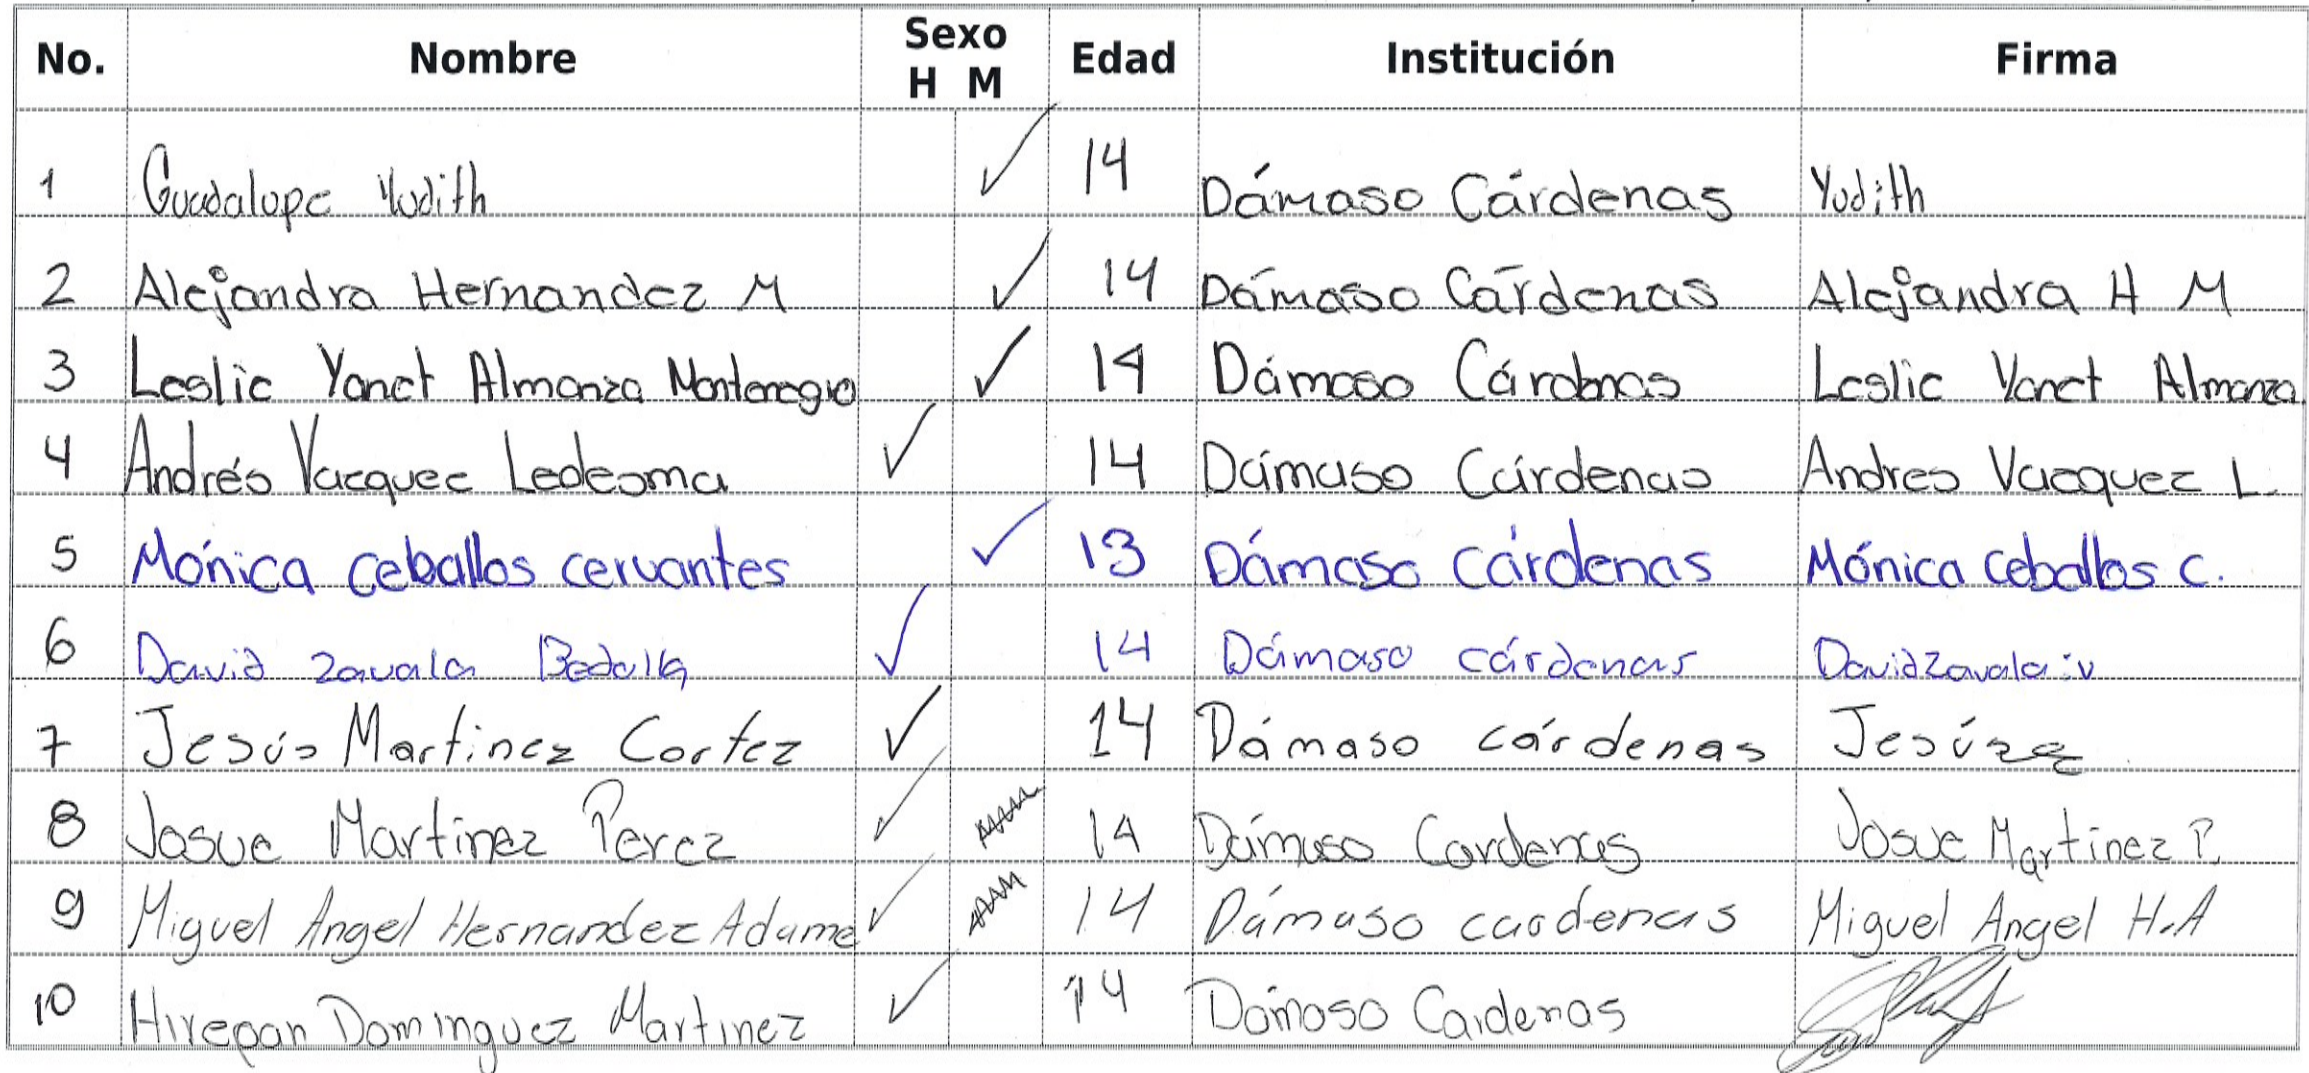 No. Nombre Sexo H M Edad Institución Firma
1 Guadalupe Yudith ✓ 14 Dámaso Cárdenas Yudith
2 Alejandra Hernandez M ✓ 14 Dámaso Cárdenas Alejandra H M
3 Leslie Yanet Almanza Montenegro ✓ 14 Dámaso Cárdenas Leslie Yanet Almanza
4 Andrés Vazquez Ledesma ✓ 14 Dámaso Cárdenas Andres Vazquez L.
5 Mónica Ceballos cervantes ✓ 13 Dámaso Cárdenas Mónica Ceballos C.
6 David Zavala Bedolla ✓ 14 Dámaso cárdenas David Zavala :v
7 Jesús Martinez Cortez ✓ 14 Dámaso cárdenas
8 Josue Martinez Perez ✓ 14 Dámaso Cardenas Josue Martinez P.
9 Miguel Angel Hernandez Adame ✓ 14 Dámaso cardenas Miguel Angel H.A
10 Hirepan Dominguez Martinez ✓ 14 Dámaso Cardenas